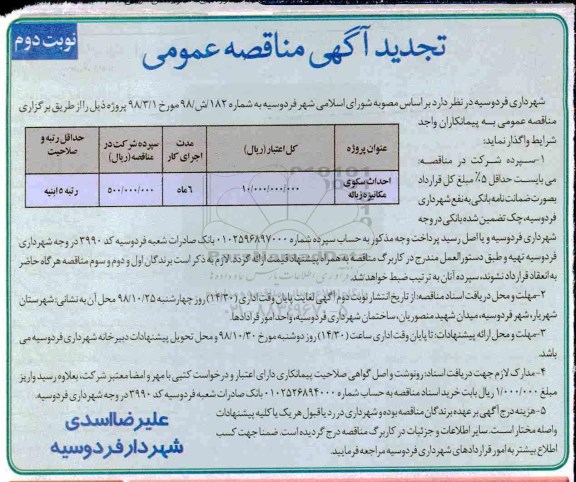 نوبت دوم
تجدید آگهی مناقصه عمومی
شهرداری فردوسیه در نظر دارد بر اساس مصوبه شورای اسلامی شهر فردوسیه به شماره ۱۸۲/ش/۹۸ مورخ ۹۸/۳/۱ پروژه ذیل را از طریق برگزاری
مناقصه عمومی به پیمانکاران واجد
شرایط واگذار نماید:
عنوان پروژه | کل اعتبار (ریال) | مدت اجرای کار | سپرده شرکت در مناقصه (ریال) | حداقل رتبه و صلاحیت
احداث سکوی مکانیزه زباله | ۱۰/۰۰۰/۰۰۰/۰۰۰ | ۶ ماه | ۵۰۰/۰۰۰/۰۰۰ | رتبه ۵ ابنیه
۱-سپرده شرکت در مناقصه:
می بایست حداقل ۵٪ مبلغ کل قرارداد
بصورت ضمانت نامه بانکی به نفع شهرداری
فردوسیه، چک تضمین شده بانکی در وجه
شهرداری فردوسیه و یا اصل رسید پرداخت وجه مذکور به حساب سپرده شماره ۰۱۰۲۵۹۶۸۹۷۰۰۰ بانک صادرات شعبه فردوسیه کد ۳۹۹۰ در وجه شهرداری
فردوسیه تهیه و طبق دستورالعمل مندرج در کاربرگ مناقصه به همراه پیشنهاد قیمت ارائه گردد. لازم به ذکر است برندگان اول و دوم و سوم مناقصه هرگاه حاضر
به انعقاد قرارداد نشوند، سپرده آنان به ترتیب ضبط خواهد شد.
۲-مهلت و محل دریافت اسناد مناقصه: از تاریخ انتشار نوبت دوم آگهی لغایت پایان وقت اداری (۱۴/۳۰) روز چهارشنبه ۹۸/۱۰/۲۵ محل آن به نشانی: شهرستان
شهریار، شهر فردوسیه، میدان شهید منصوریان، ساختمان شهرداری فردوسیه، واحد امور قرارداها.
۳-مهلت و محل ارائه پیشنهادات: تا پایان وقت اداری ساعت (۱۴/۳۰) روز دوشنبه مورخ ۹۸/۱۰/۳۰ و محل تحویل پیشنهادات دبیرخانه شهرداری فردوسیه می
باشد.
۴-مدارک لازم جهت دریافت اسناد: رونوشت و اصل گواهی صلاحیت پیمانکاری دارای اعتبار و درخواست کتبی با مهر و امضا معتبر شرکت، بعلاوه رسید واریز
مبلغ ۱/۰۰۰/۰۰۰ ریال بابت خرید اسناد مناقصه به حساب شماره ۰۱۰۲۵۲۶۸۹۴۰۰۰ بانک صادرات شعبه فردوسیه کد ۳۹۹۰ در وجه شهرداری فردوسیه.
۵-هزینه درج آگهی بر عهده برندگان مناقصه بوده و شهرداری در رد یا قبول هر یک یا کلیه پیشنهادات
واصله مختار است. سایر اطلاعات و جزئیات در کاربرگ مناقصه درج گردیده است. ضمنا جهت کسب
اطلاع بیشتر به امور قراردادهای شهرداری فردوسیه مراجعه فرمایید.
علیرضا اسدی
شهردار فردوسیه